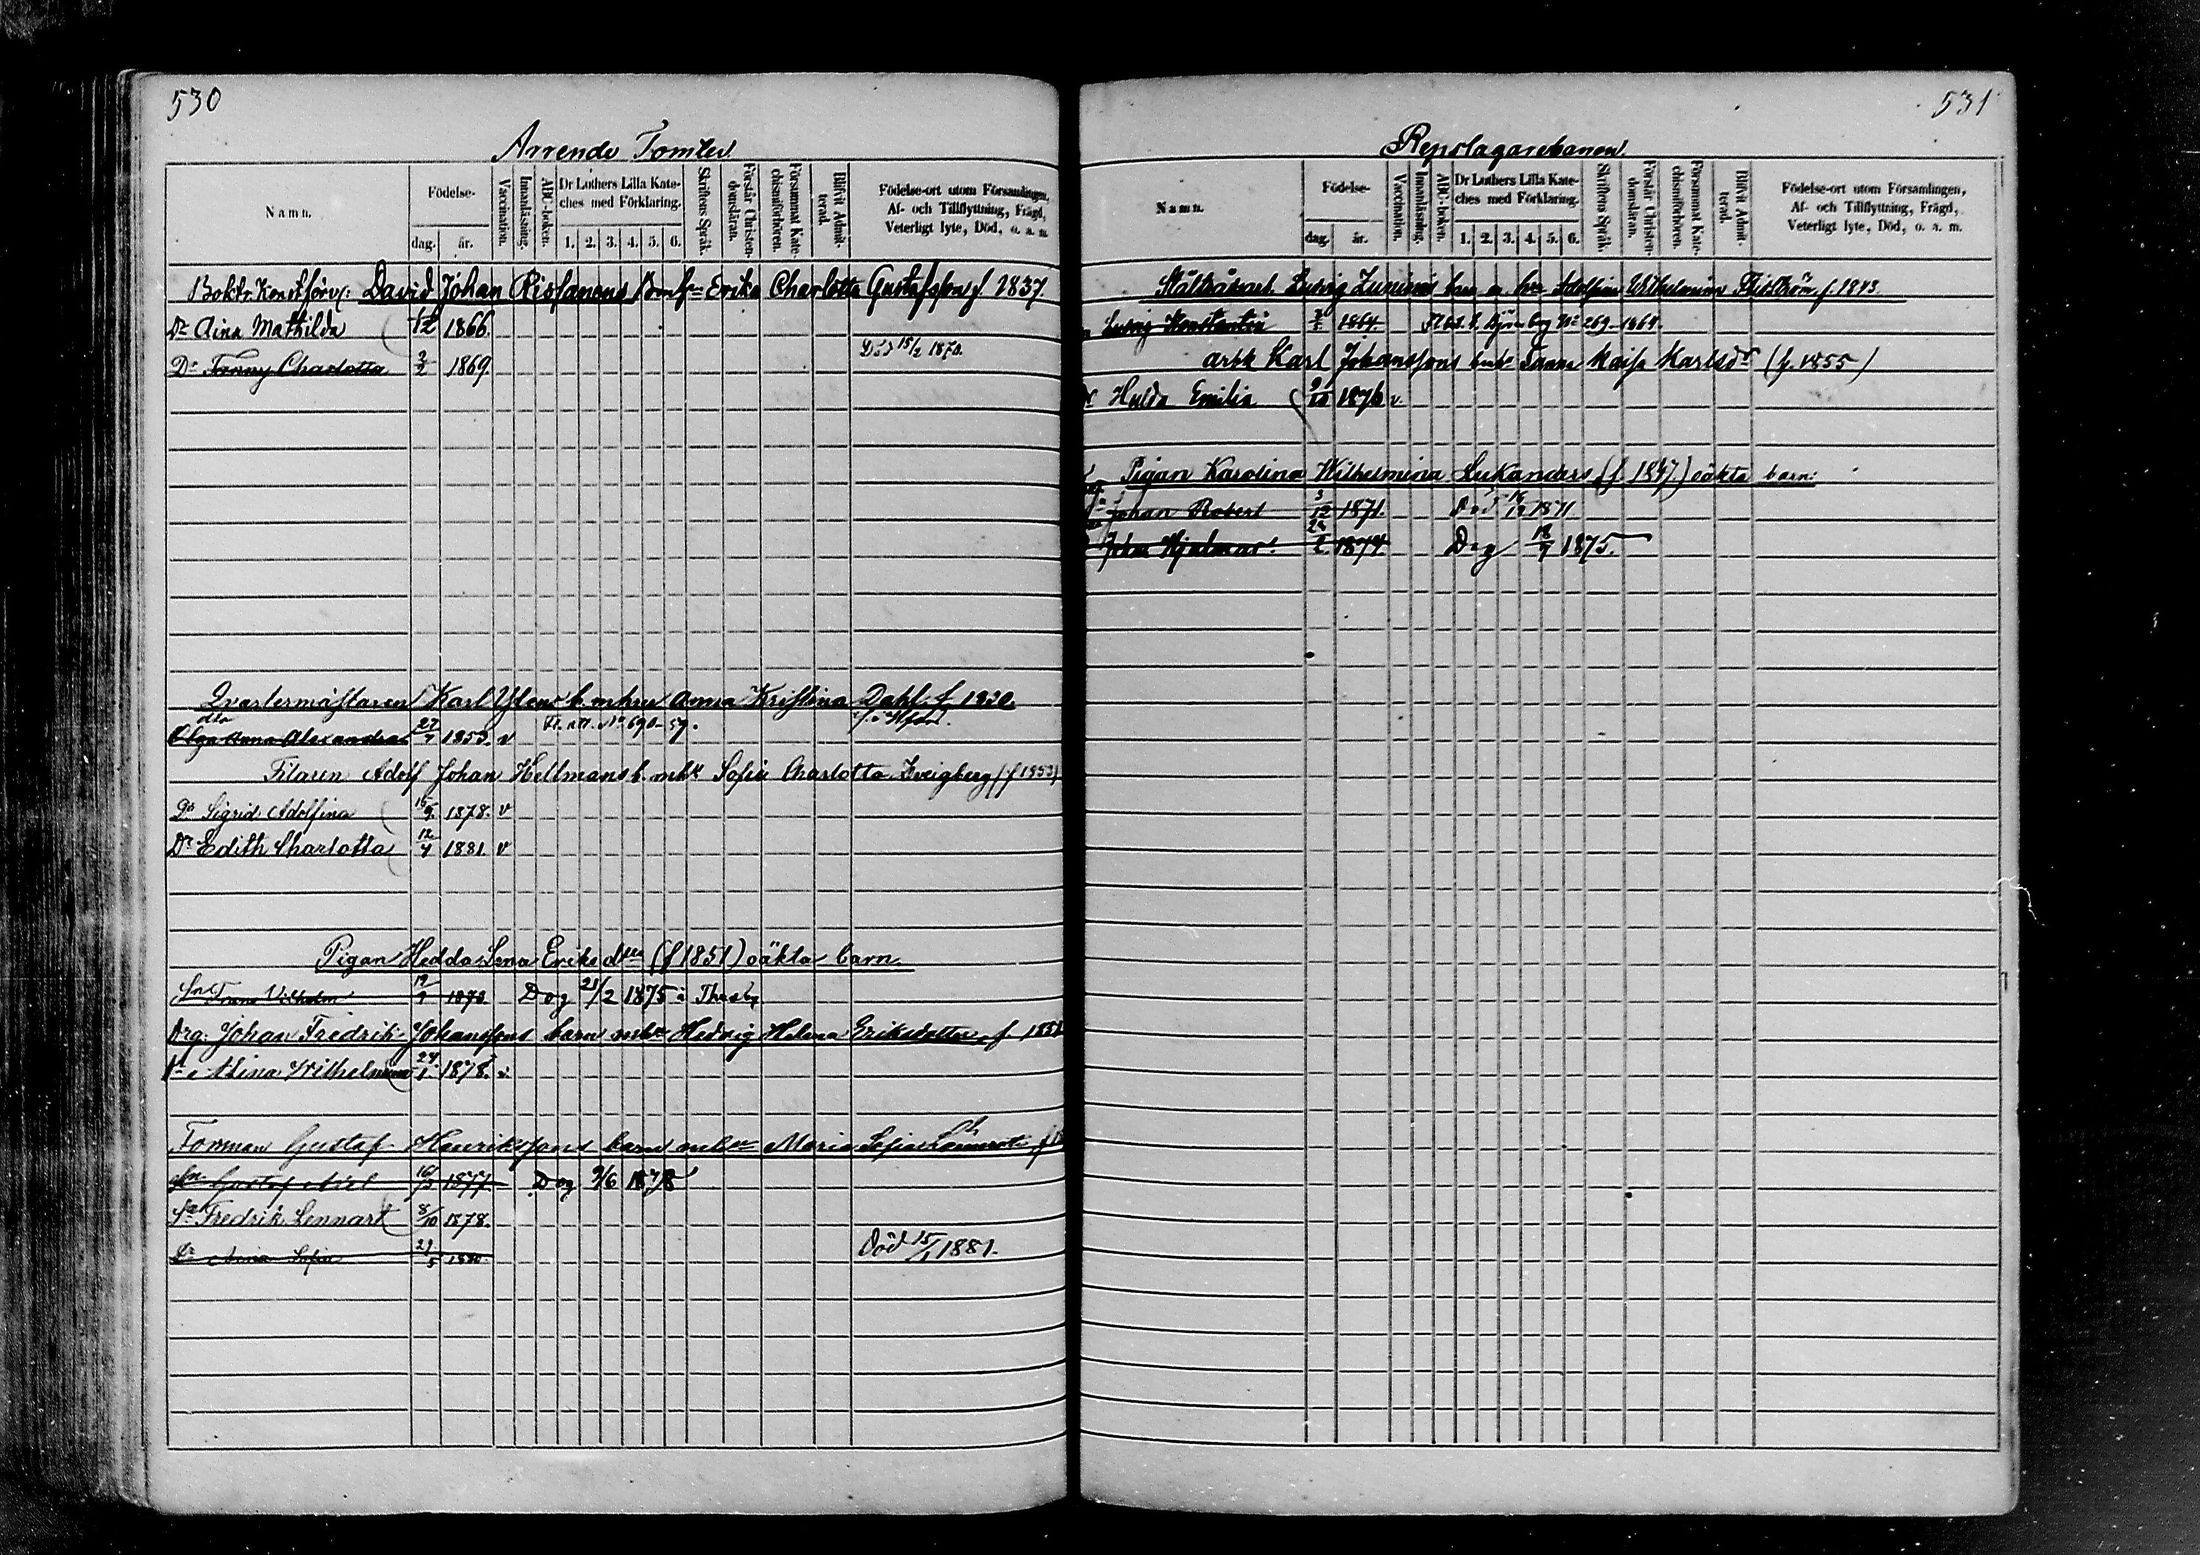 530
Arrende Tomter
Namn.
Födelse-
dag.
år.
Vaccination.
Innanläsning.
ABC-boken.
Dr Luthers Lilla Kate-
ches med Förklaring.
1. 2. 3. 4. 5. 6.
Skriftens Språk.
Förstår Christen-
domsläran.
Försummat Kate-
chismiförhören.
Blifvit Admit-
terad.
Födelse-ort utom Församlingen,
Af- och Tillflyttning, Frägd,
Veterligt lyte, Död, o. a. m.
David Johan Erika Charlotta Gustafsson f. 1837.
Dr Aina Mathilda 12 1866.
Död 15/2 1870.
Dr Fanny Charlotta 3/2 1869
Qvartermästaren Karl b. m hru Anna Kristina Dahl f. 1830.
Olga Anna Alexandra 27/7 1853. v
Filaren Adolf Johan Hellmans b. mhu Sofia Charlotta (f 1853)
Dr Sigrid Adolfina 15/9. 1878. v
Dr Edith Charlotta 12/4 1881. v
Pigan Hedda Lena Eriksdtrs (f 1851) oäkta barn.
Sn Frans Vilhelm 19/9 1873 Dog 21/2 1875 i
Johan Fredrik Johanssons barn mhu Hedvig Helena Eriksdotter, f. 1851
Mina Wilhelmina 24/1 1878. v
Forman Gustaf Henrikssons barn mhu Maria Sofia
Sn Gustaf 16/3 1877 Dog 9/6 1878
Sn Fredrik Lennart 8/10 1878.
Dr Sofia 29/5 1880 Död 15/1 1881.
531
Repslagarebanen
Namn.
Födelse-
dag.
år.
Vaccination.
Innanläsning.
ABC-boken.
Dr Luthers Lilla Kate-
ches med Förklaring.
1. 2. 3. 4. 5. 6.
Skriftens Språk.
Förstår Christen-
domsläran.
Försummat Kate-
chismiförhören.
Blifvit Admit-
terad.
Födelse-ort utom Församlingen,
Af- och Tillflyttning, Frägd,
Veterligt lyte, Död, o. a. m.
Ludvig Adolfina Wilhelmina f. 1843.
Ludvig Konstantin 1864. No 269 1864.
arbk Karl Johanssons Sanna Kaisa Karlsdr (f. 1855)
Dr Hulda Emilia 9/10 1876 v.
Pigan Karolina Wilhelmina Lukanders (f. 1847.) oäkta barn:
Johan Robert 3/12 1871. Död 16/12 1871
Johan Hjalmar 1874 Dog 18/7 1875.